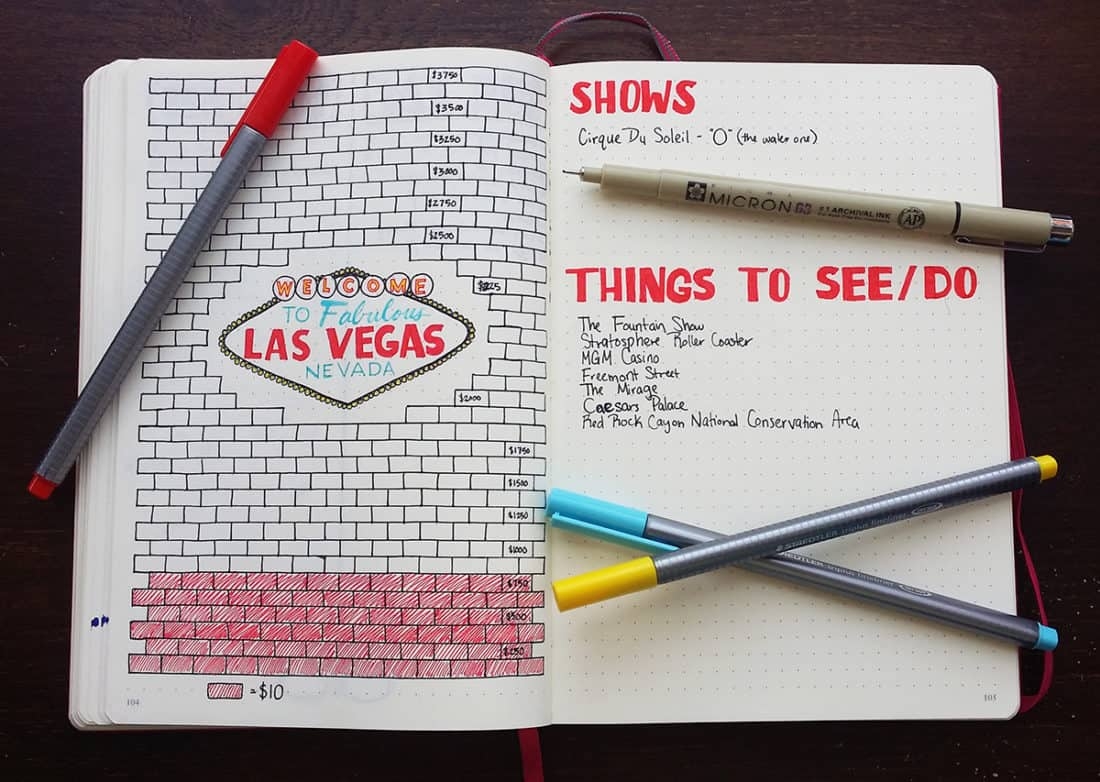 $3750
$3500
$3250
$3000
$2750
$2500
WELCOME
$225
TO Fabulous
LAS VEGAS
NEVADA
$2000
$1750
$1500
$1250
$1000
$750
$500
$250
= $10
104
SHOWS
Cirque Du Soleil - "O" (the water one)
MICRON 03 #1 ARCHIVAL INK
AP
THINGS TO SEE/DO
The Fountain Show
Stratosphere Roller Coaster
MGM Casino
Freemont Street
The Mirage
Caesars Palace
Red Rock Cayon National Conservation Area
STAEDTLER triplus fineliner
STAEDTLER triplus fineliner
105